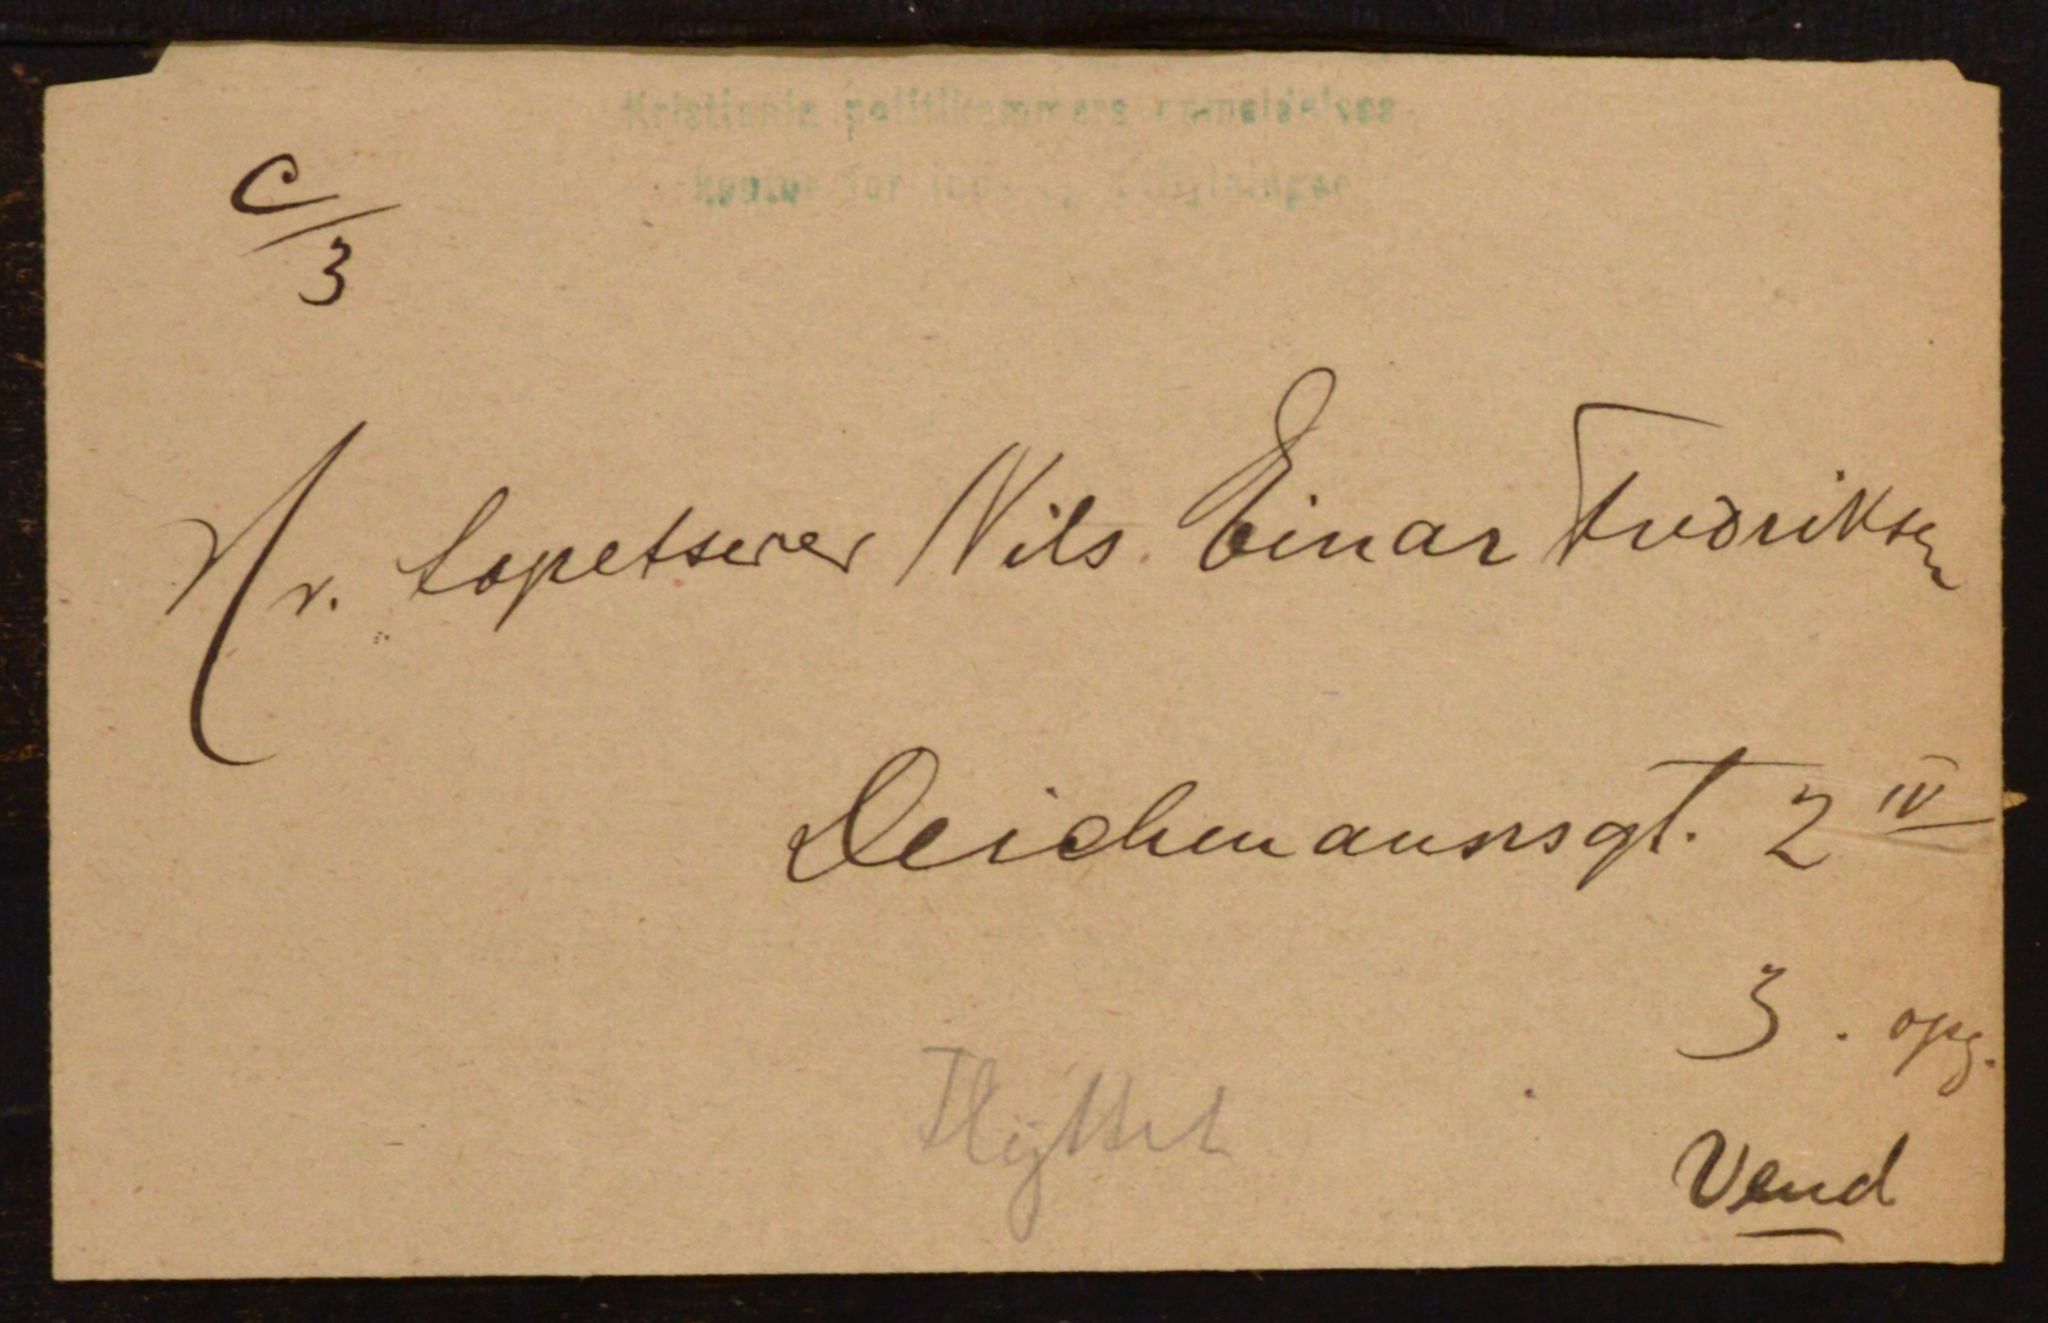 Kristiania politikammers anmeldelses-
kontor for ind- og udflytninger
C/3
Hr. tapetserer Nils Einar Fredriksen
Deichmannsgt. 2 IV
3. opg.
Flyttet
Vend